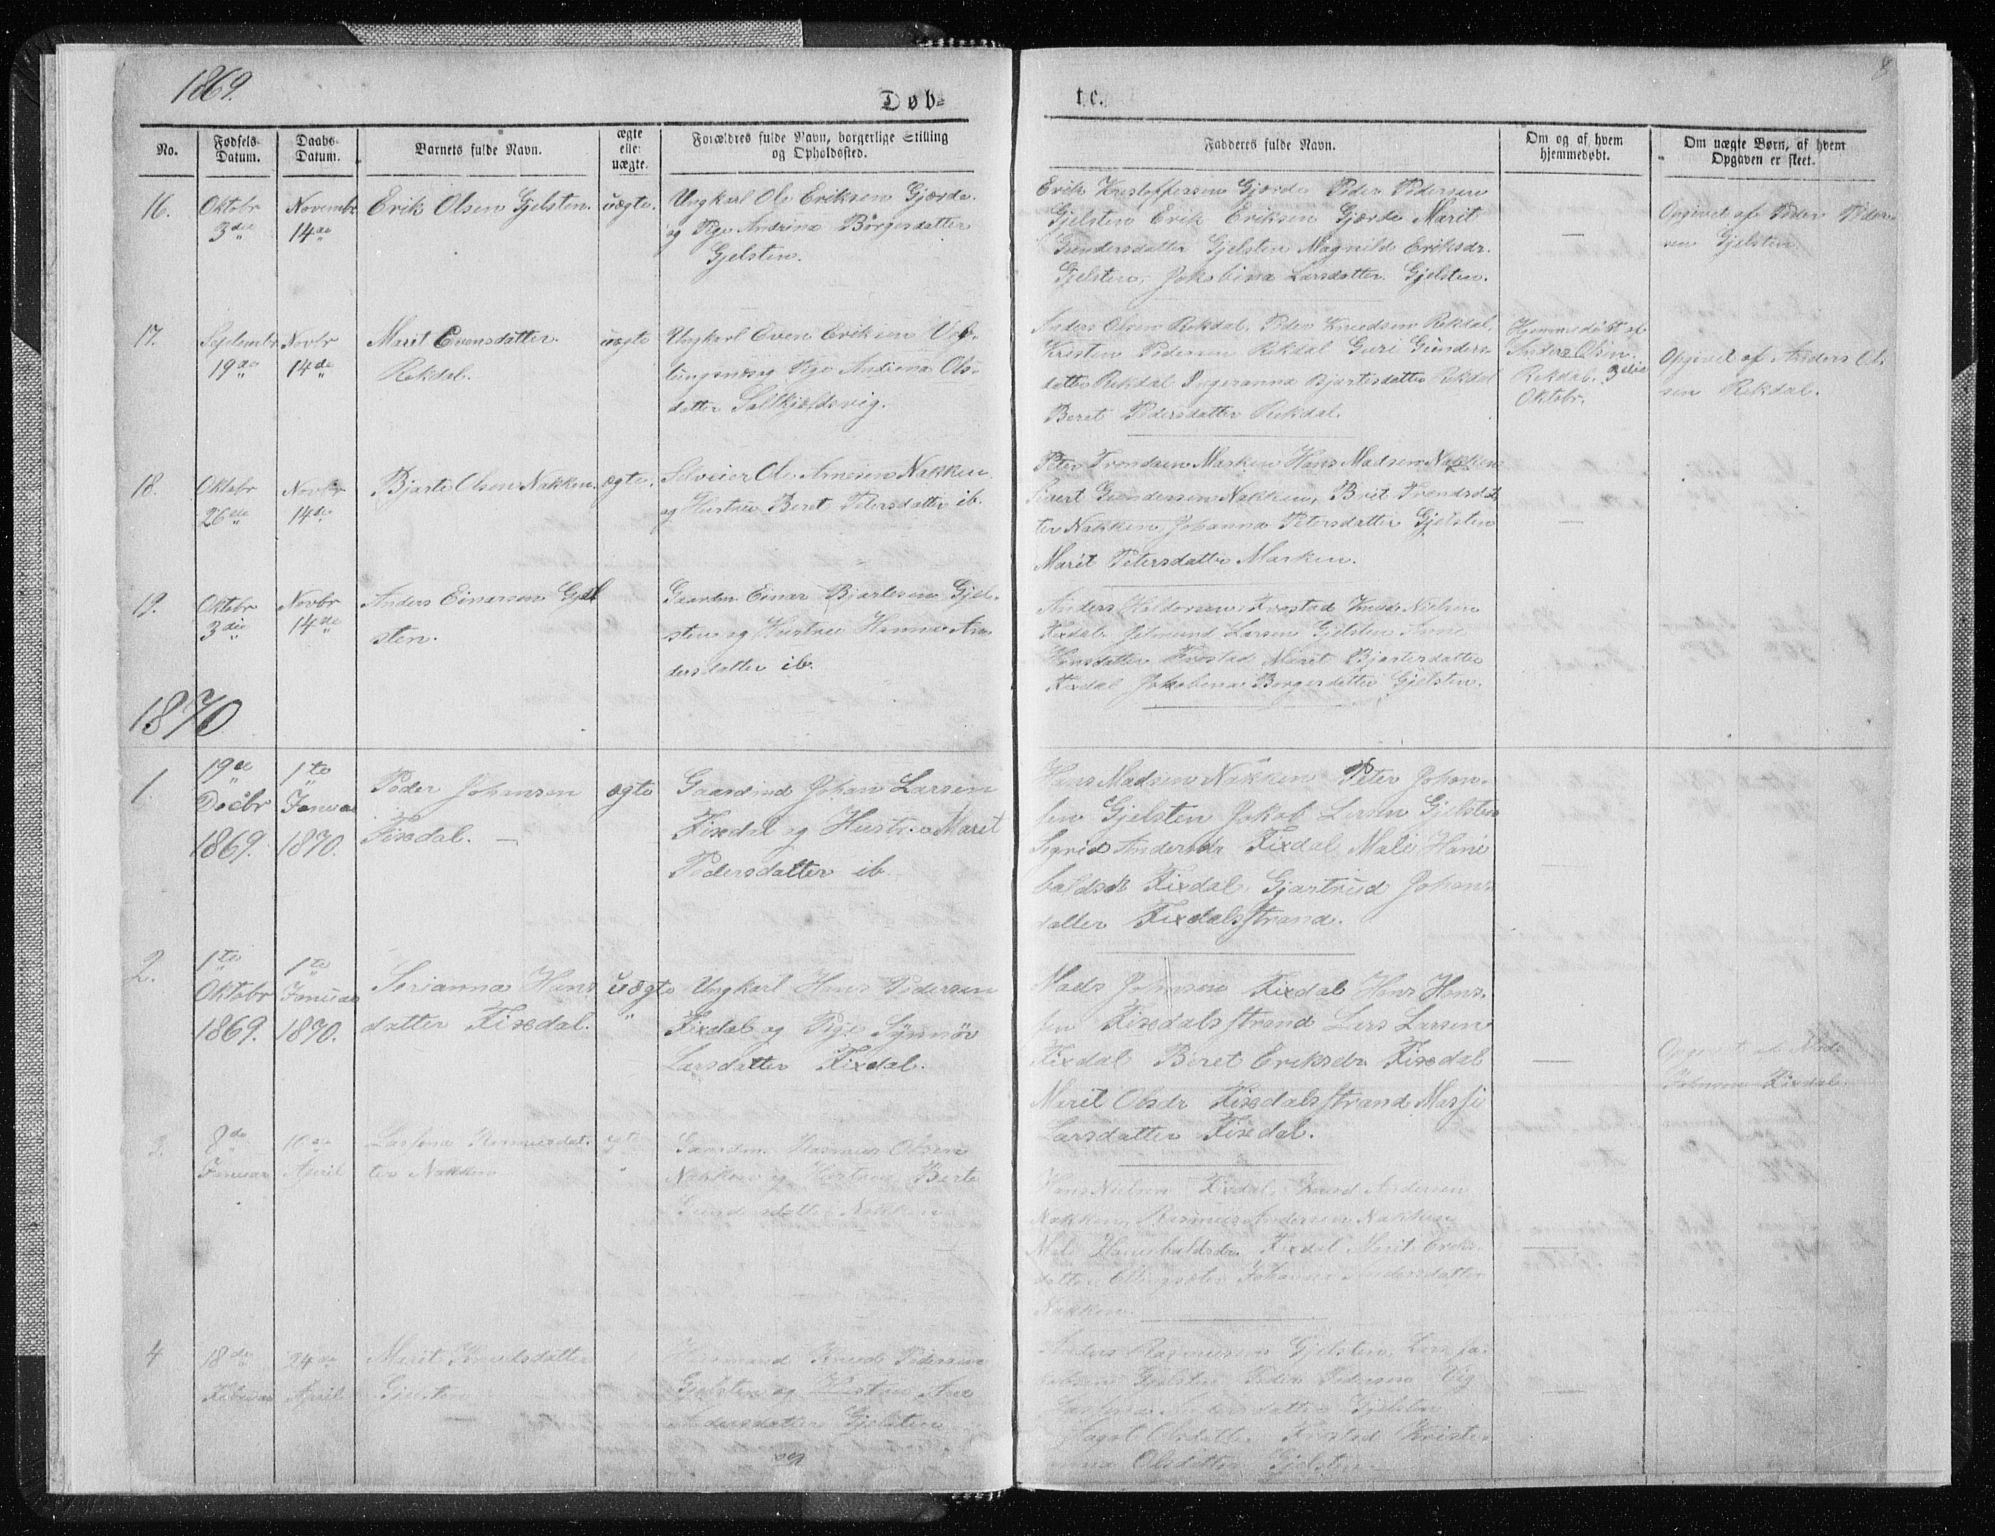 1869.
8
Døb-
te.
No.
Fødsels-
Datum.
Daabs-
Datum.
Barnets fulde Navn.
ægte
eller
uægte.
Forældres fulde Navn, borgerlige Stilling
og Opholdssted.
Fadderes fulde Navn.
Om og af hvem
hjemmedøbt.
Om uægte Børn, af hvem
Opgaven er skeet.
16.
Oktobr
3die
Novembr
14de
Erik Olsen Gjelsten.
uægte.
Ungkarl Ole Eriksen Gjærde
og Pige Andrina Børgesdatter
Gjelsten.
Erik Kristoffersen Gjærde Peder Pedersen
Gjelsten Erik Eriksen Gjærde Marit
Gundersdatter Gjelsten Magnild Eriksdr.
Gjelsten, Jakobina Larsdatter Gjelsten.
—
Opgivet af Peder Peder-
sen Gjelsten.
17.
Septembr
19de
Novbr
14de
Marit Evensdatter
Rekdal.
uægte
Ungkarl Even Eriksen
og Pige Andrina Ols-
datter
Anders Olsen Rekdal, Peder Knudsen Rekdal,
Kristen Pedersen Rekdal Guri Gunders-
datter Rekdal Ingeranna Bjartesdatter Rekdal
Beret Pedersdatter Rekdal.
Hjemmedøbt af
Anders Olsen
Rekdal. 3die
Oktobr.
Opgivet af Anders Ol-
sen Rekdal.
18.
Oktobr
26de
Novbr
14de
Bjarte Olsen Nakken.
ægte.
Selveier Ole Arnesen Nakken
og Hustru Beret Petersdatter ib.
Peter Trondsen Marken Hans Madsen Nakken
Sivert Gundersen Nakken, Brit Trondsdat
ter Nakken, Johanna Petersdatter Gjelsten
Marit Petersdatter Marken.
—
19.
Oktobr
3die
Novbr
14de
Anders Einarsen Gjel
sten.
Gaardm Einar Bjartesen Gjel-
sten og Hustru Hanna An-
dersdatter ib.
Anders Haldorsen Frostad Knud Nielsen
Fixdal Jetmund Larsen Gjelsten Anne
Hansdatter Frostad Marit Bjartesdatter
Fixdal Jakobina Børgesdatter Gjelsten.
1870
1
19de
Decbr
1869.
1te
Januar
1870.
Peder Johansen
Fixdal. —
ægte
Gaardmd Johan Larsen
Fixdal og Hustru Marit
Pedersdatter ib.
Hans Madsen Nakken Peter Johan-
sen Gjelsten Jakob Larsen Gjelsten
Sigrid Andersdr Fixdal Mali Hani
baldsdt Fixdal, Gjartrud Johans
datter Fixdalsstrand.
—
2.
1te
Oktobr
1869.
1te
Januar
1870.
Serianna Hans
datter Fixdal.
uægte
"
Ungkarl Hans Pedersen
Fixdal og Pige Synnøv
Larsdatter Fixdal.
Mads Johnsen Fixdal Hans Hans-
sen Fixdalsstrand Lars Larsen
Fixdal Beret Eriksdr Fixdal
Marit Olsdr Fixdalsstrand Massi
Larsdatter Fixdal.
—
Opgivet af Mads
Johnsen Fixdal.
3.
Januar
10de
April
Rasmusdat-
ter Nakken
ægte
"
Gaardm Rasmus Olsen
Nakken og Hustru Berte
Gundersdatter Nakken
Hans Nielsen Fixdal, Knud Andersen
Nakken, Rasmus Andersen Nakken
Mali Hanibaldsdr Fixdal Marit Eriks-
datter Johanna Andersdatter
Nakken
—
4
18de
Februar
24de
April
Marit Knudsdatter
Gjelsten
Knud Pedersen
Gjelsten og Hustru Ane
Andersdatter Gjelsten
Anders Rasmussen Gjelsten, Lars Ja-
Gjelsten Peder Pedersen Vig
Andersdatter Gjelsten
Olsdatter Frostad Kristi-
Olsdatter Gjelsten
—